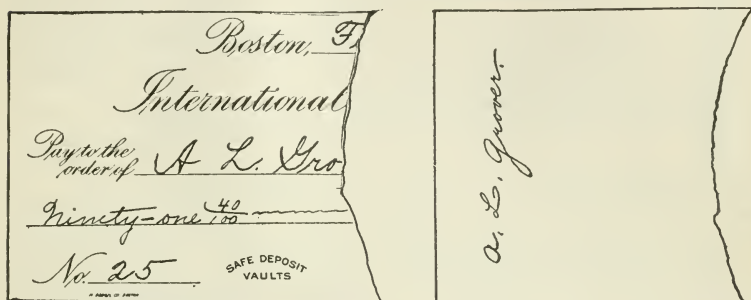 Boston, F
International
Pay to the order of A L. Gro
Ninety-one 40/100
No. 25 SAFE DEPOSIT VAULTS
A. L. Grover.